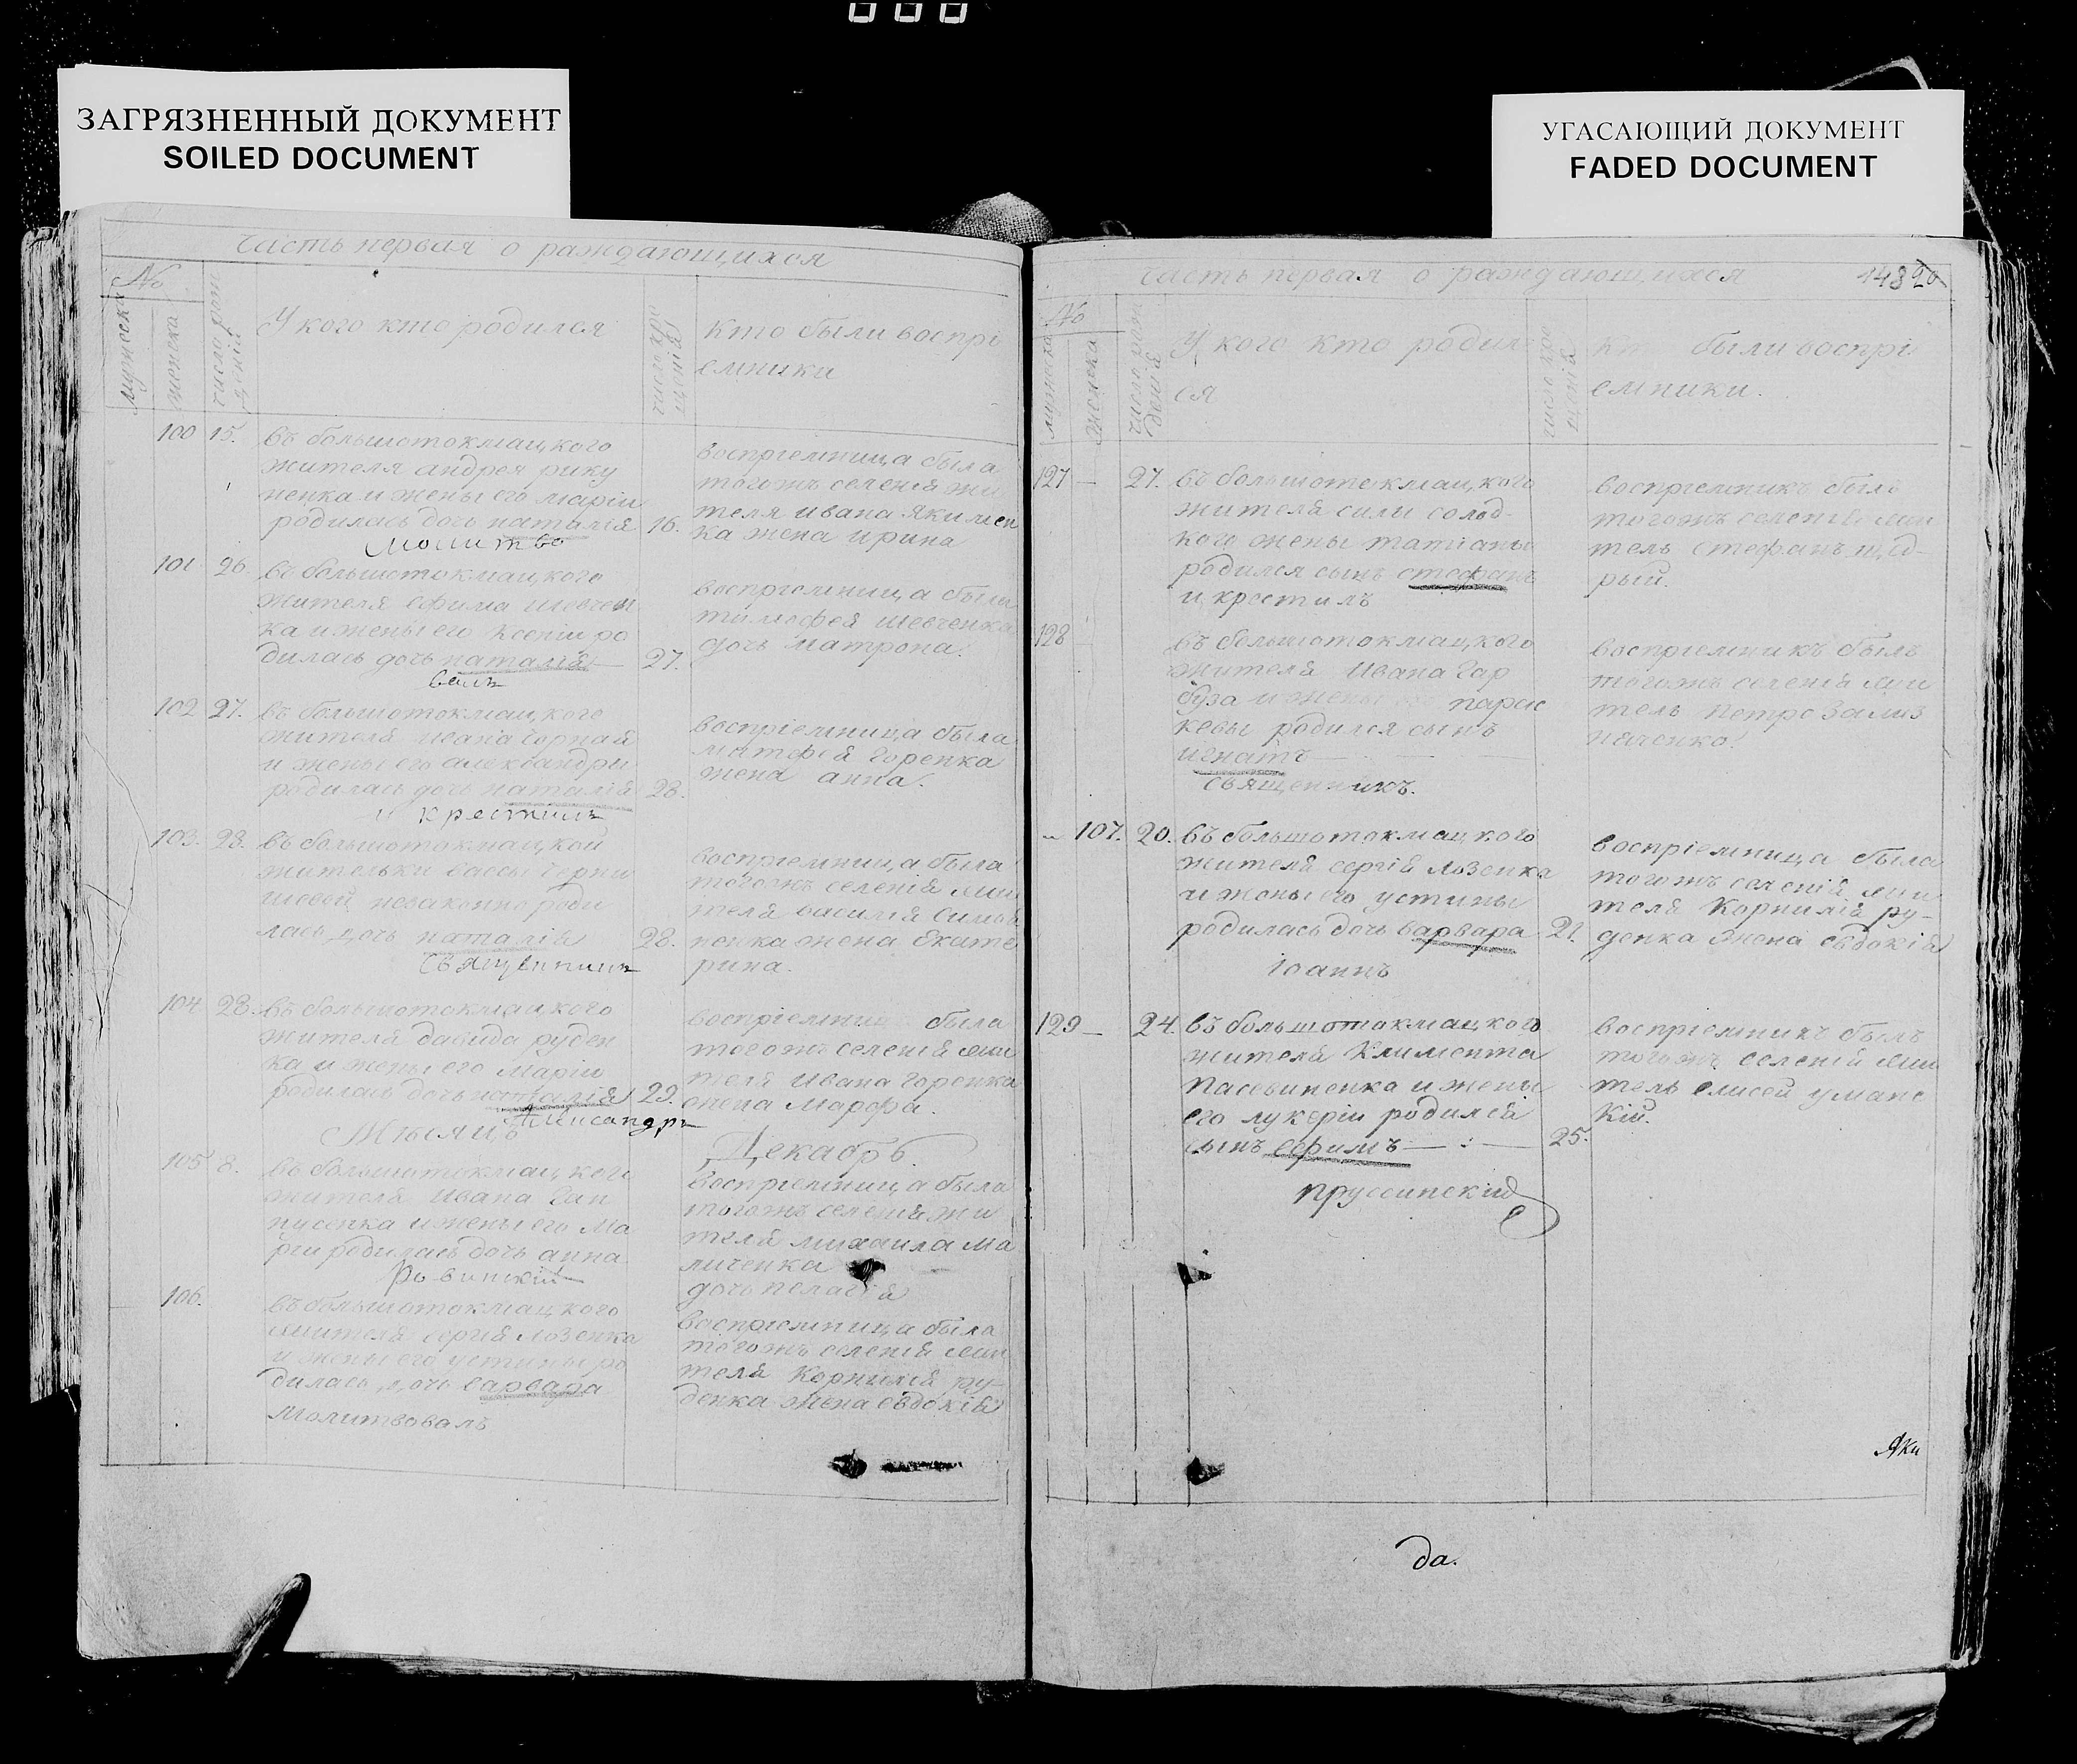 ЗАГРЯЗНЕННЫЙ ДОКУМЕНТ
SOILED DOCUMENT
УГАСАЮЩИЙ ДОКУМЕНТ
FADED DOCUMENT
часть первая о раждающихся
№
мужеска
женска
число рож
дений
У кого кто родился
число кре
щений
кто были воспрі
емники
100 15.
въ большотокмацкого
жителя андрея рику
ненка и жены его маріи
родилась дочь наталія 16.
молитво
воспріемница была
тогожъ селенія жи
теля ивана якимен
ка жена ирина
101 26.
въ большотокмацкого
жителя ефима шевчен
ка и жены его ксеніи ро
дилась дочь наталія 27.
валъ
воспріемница была
тимофея шевченка
дочь матрона.
102 27.
въ большотокмацкого
жителя ивана
и жены его александри
родилась дочь наталія 28.
и крестилъ
воспріемница была
матфея горенка
жена анна.
103. 28.
въ большотокмацкой
жительки вассы черни
шевой незаконно роди
лась дочь наталія 28.
священникъ
воспріемница была
тогожъ селенія жи
теля василія
ненка жена екате
рина.
104 28.
въ большотокмацкого
жителя давида руден
ка и жены его маріи
родилась дочь наталія 29.
Александръ
воспріемница была
тогожъ селенія жи
теля ивана горенка
жена марфа.
Мѣсяцъ Декабрь
105 8.
въ большотокмацкого
жителя ивана ган
нусенка и жены его ма
ріи родилась дочь анна
воспріемница была
тогожъ селенія жи
теля михаила ма
личенка
дочь пелагія
106.
въ большотокмацкого
жителя сергія лозенка
и жены его устины ро
дилась дочь варвара
молитвовалъ
воспріемница была
тогожъ селенія жи
теля корнилія ру-
денка жена евдокія
часть первая о раждающихся
148 20
№
мужеска
женска
число рож
денія
У кого кто родил
ся
число кре
щенія
были воспрі
емники.
127 — 27.
въ большотокмацкого
жителя сили солод-
кого жены татіаны
родился сынъ стефанъ
и крестилъ
воспріемникъ былъ
тогожъ селенія жи
тель стефанъ щед-
рый.
128 —
въ большотокмацкого
жителя ивана гар
буза и жены парас
кевы родился сынъ
игнатъ
священникъ.
воспріемникъ былъ
тогожъ селенія жи
тель петро Зализ
няченко.
107. 20.
въ большотокмацкого
жителя сергія лозенка
и жены его устины
родилась дочь варвара 21.
іоаннъ
воспріемница была
тогожъ селенія жи
теля корнилія ру-
денка жена евдокія
129 — 24.
въ большотокмацкого
жителя климента
пасевиненка и жены
его лукеріи родился
сынъ ефимъ 25.
пруссинскій
воспріемникъ былъ
тогожъ селенія жи
тель елисей уманс
кій.
Яки
да.